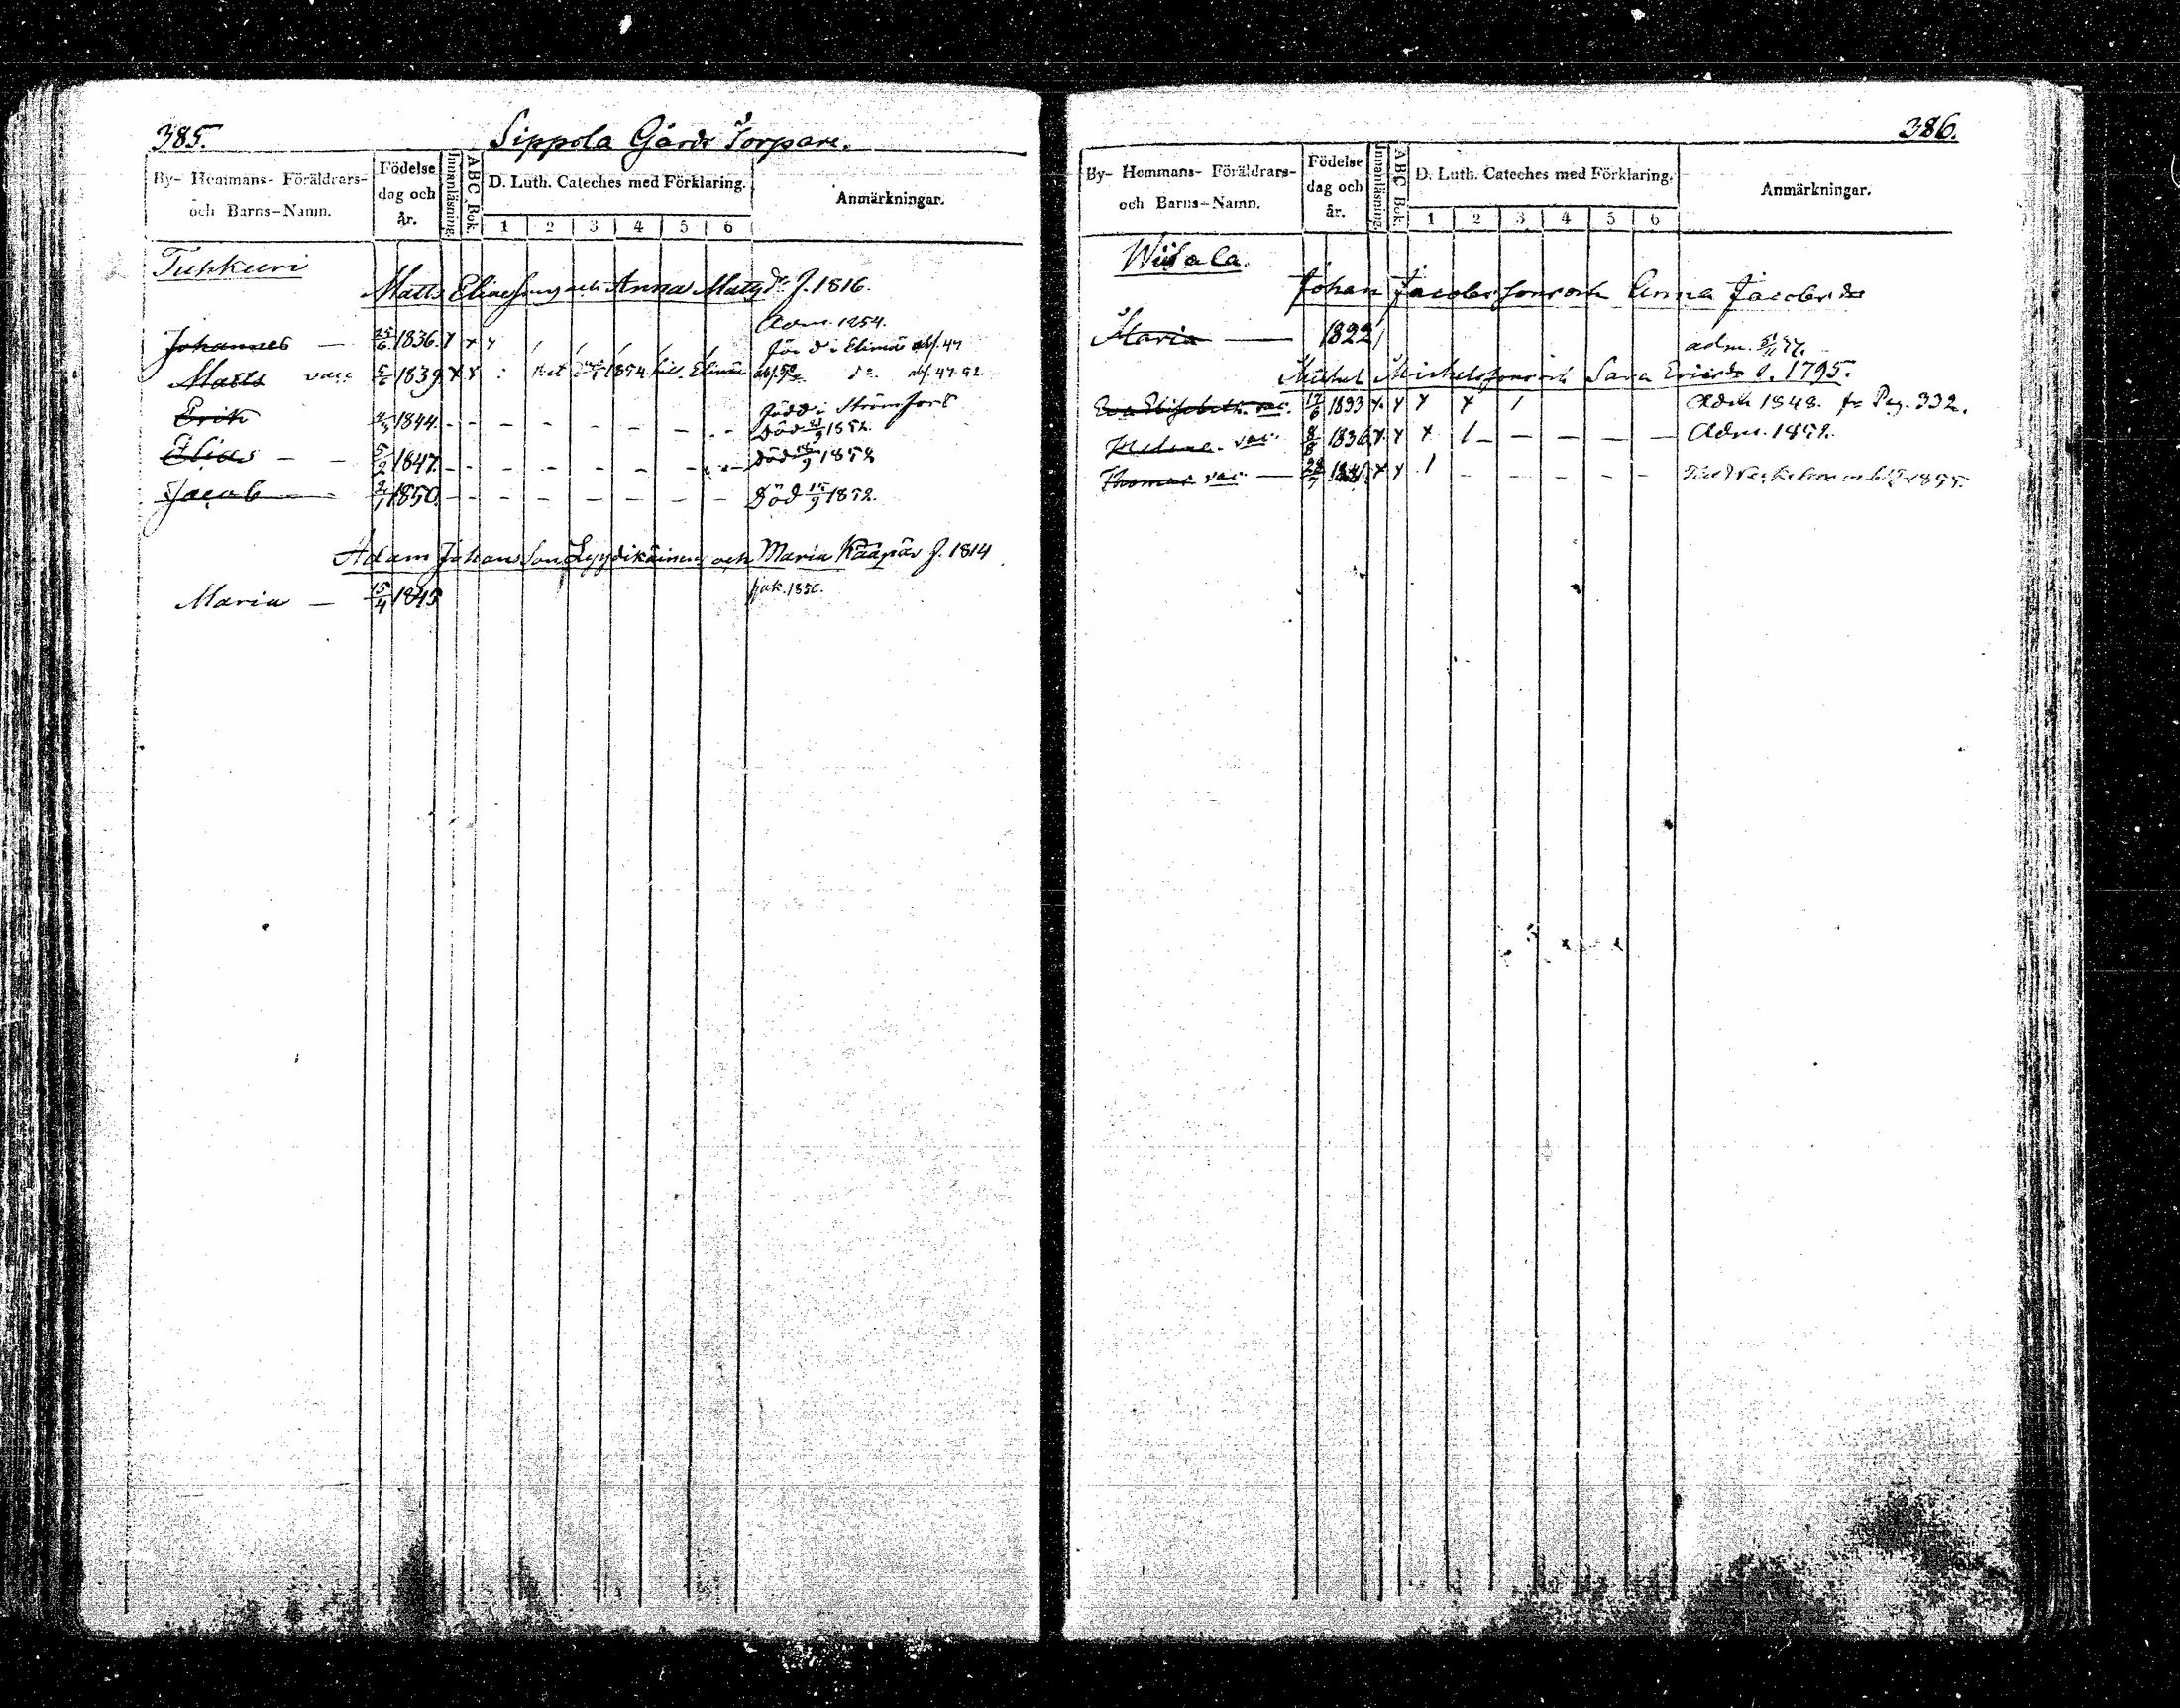 385.
Sippola Gårds Torpare.
By- Hemmans- Föräldrars- och Barns-Namn.
Födelse dag och år.
Innanläsning.
ABC Bok.
D. Luth. Cateches med Förklaring.
1 2 3 4 5 6
Anmärkningar.
Tuhkuri
Matts Eliasson och Anna Matsdr f. 1816.
Adm. 1854.
Johannes — 25/6 1836. x x x född i Elimä abs. 47
Matts vacc 5/6 1839. x x 1854. till Elimä do abs. 47-52
Erik 1844. - - - - - - född i Strömfors
död 1852.
Elias - - 5/2 1847. - - - - - - död 1852
Jacob 2/1 1850. - - - - - - Död 15/9 1852.
Adam Johansson Lyydikäinen och Maria Kaapär f. 1814
Maria — 15/4 1845 1850.
386.
By- Hemmans- Föräldrars- och Barns-Namn.
Födelse dag och år.
Innanläsning.
ABC Bok.
D. Luth. Cateches med Förklaring.
1 2 3 4 5 6
Anmärkningar.
Wiisala.
Johan Jacobsson och Anna Jacobsdr
Maria — 1822 adm.
Michel Michelsson och Sara Ericsdr f. 1795.
Eva Elisabeth vac. 17/6 1833 x x x x 1 Adm 1848. fr Pag. 332.
Helena vac. 8/8 1836 x x x 1 - - - - Adm. 1852.
Thomas vac — x x 1 - - - - - 1855.